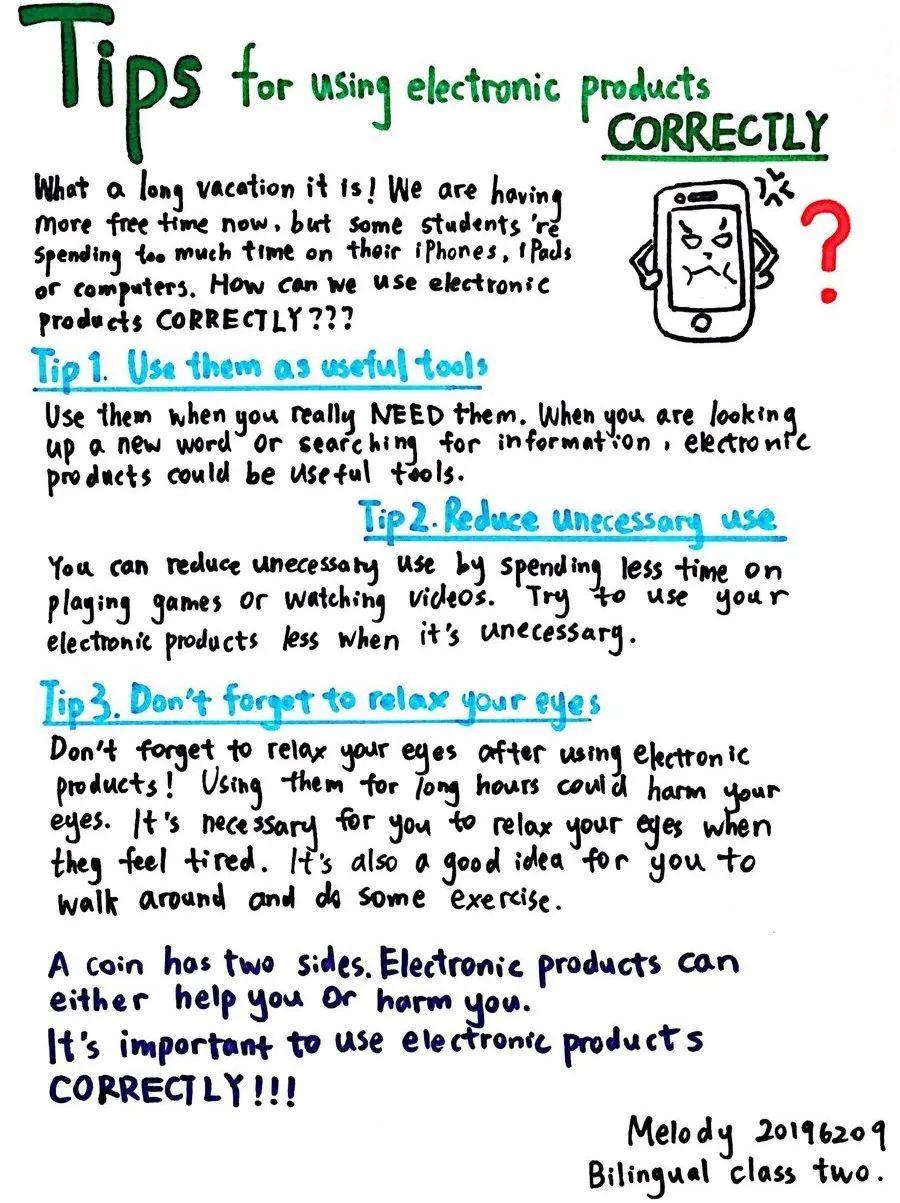 Tips for using electronic products
CORRECTLY
What a long vacation it is! We are having
more free time now, but some students 're
spending too much time on their iPhones, iPads
or computers. How can we use electronic
products CORRECTLY???
?
Tip 1. Use them as useful tools
Use them when you really NEED them. When you are looking
up a new word or searching for information, electronic
products could be useful tools.
Tip 2. Reduce unecessary use
You can reduce unecessary use by spending less time on
playing games or watching videos. Try to use your
electronic products less when it's unecessary.
Tip 3. Don't forget to relax your eyes
Don't forget to relax your eyes after using electronic
products! Using them for long hours could harm your
eyes. It's necessary for you to relax your eyes when
they feel tired. It's also a good idea for you to
walk around and do some exercise.
A coin has two sides. Electronic products can
either help you or harm you.
It's important to use electronic products
CORRECTLY!!!
Melody 20196209
Bilingual class two.